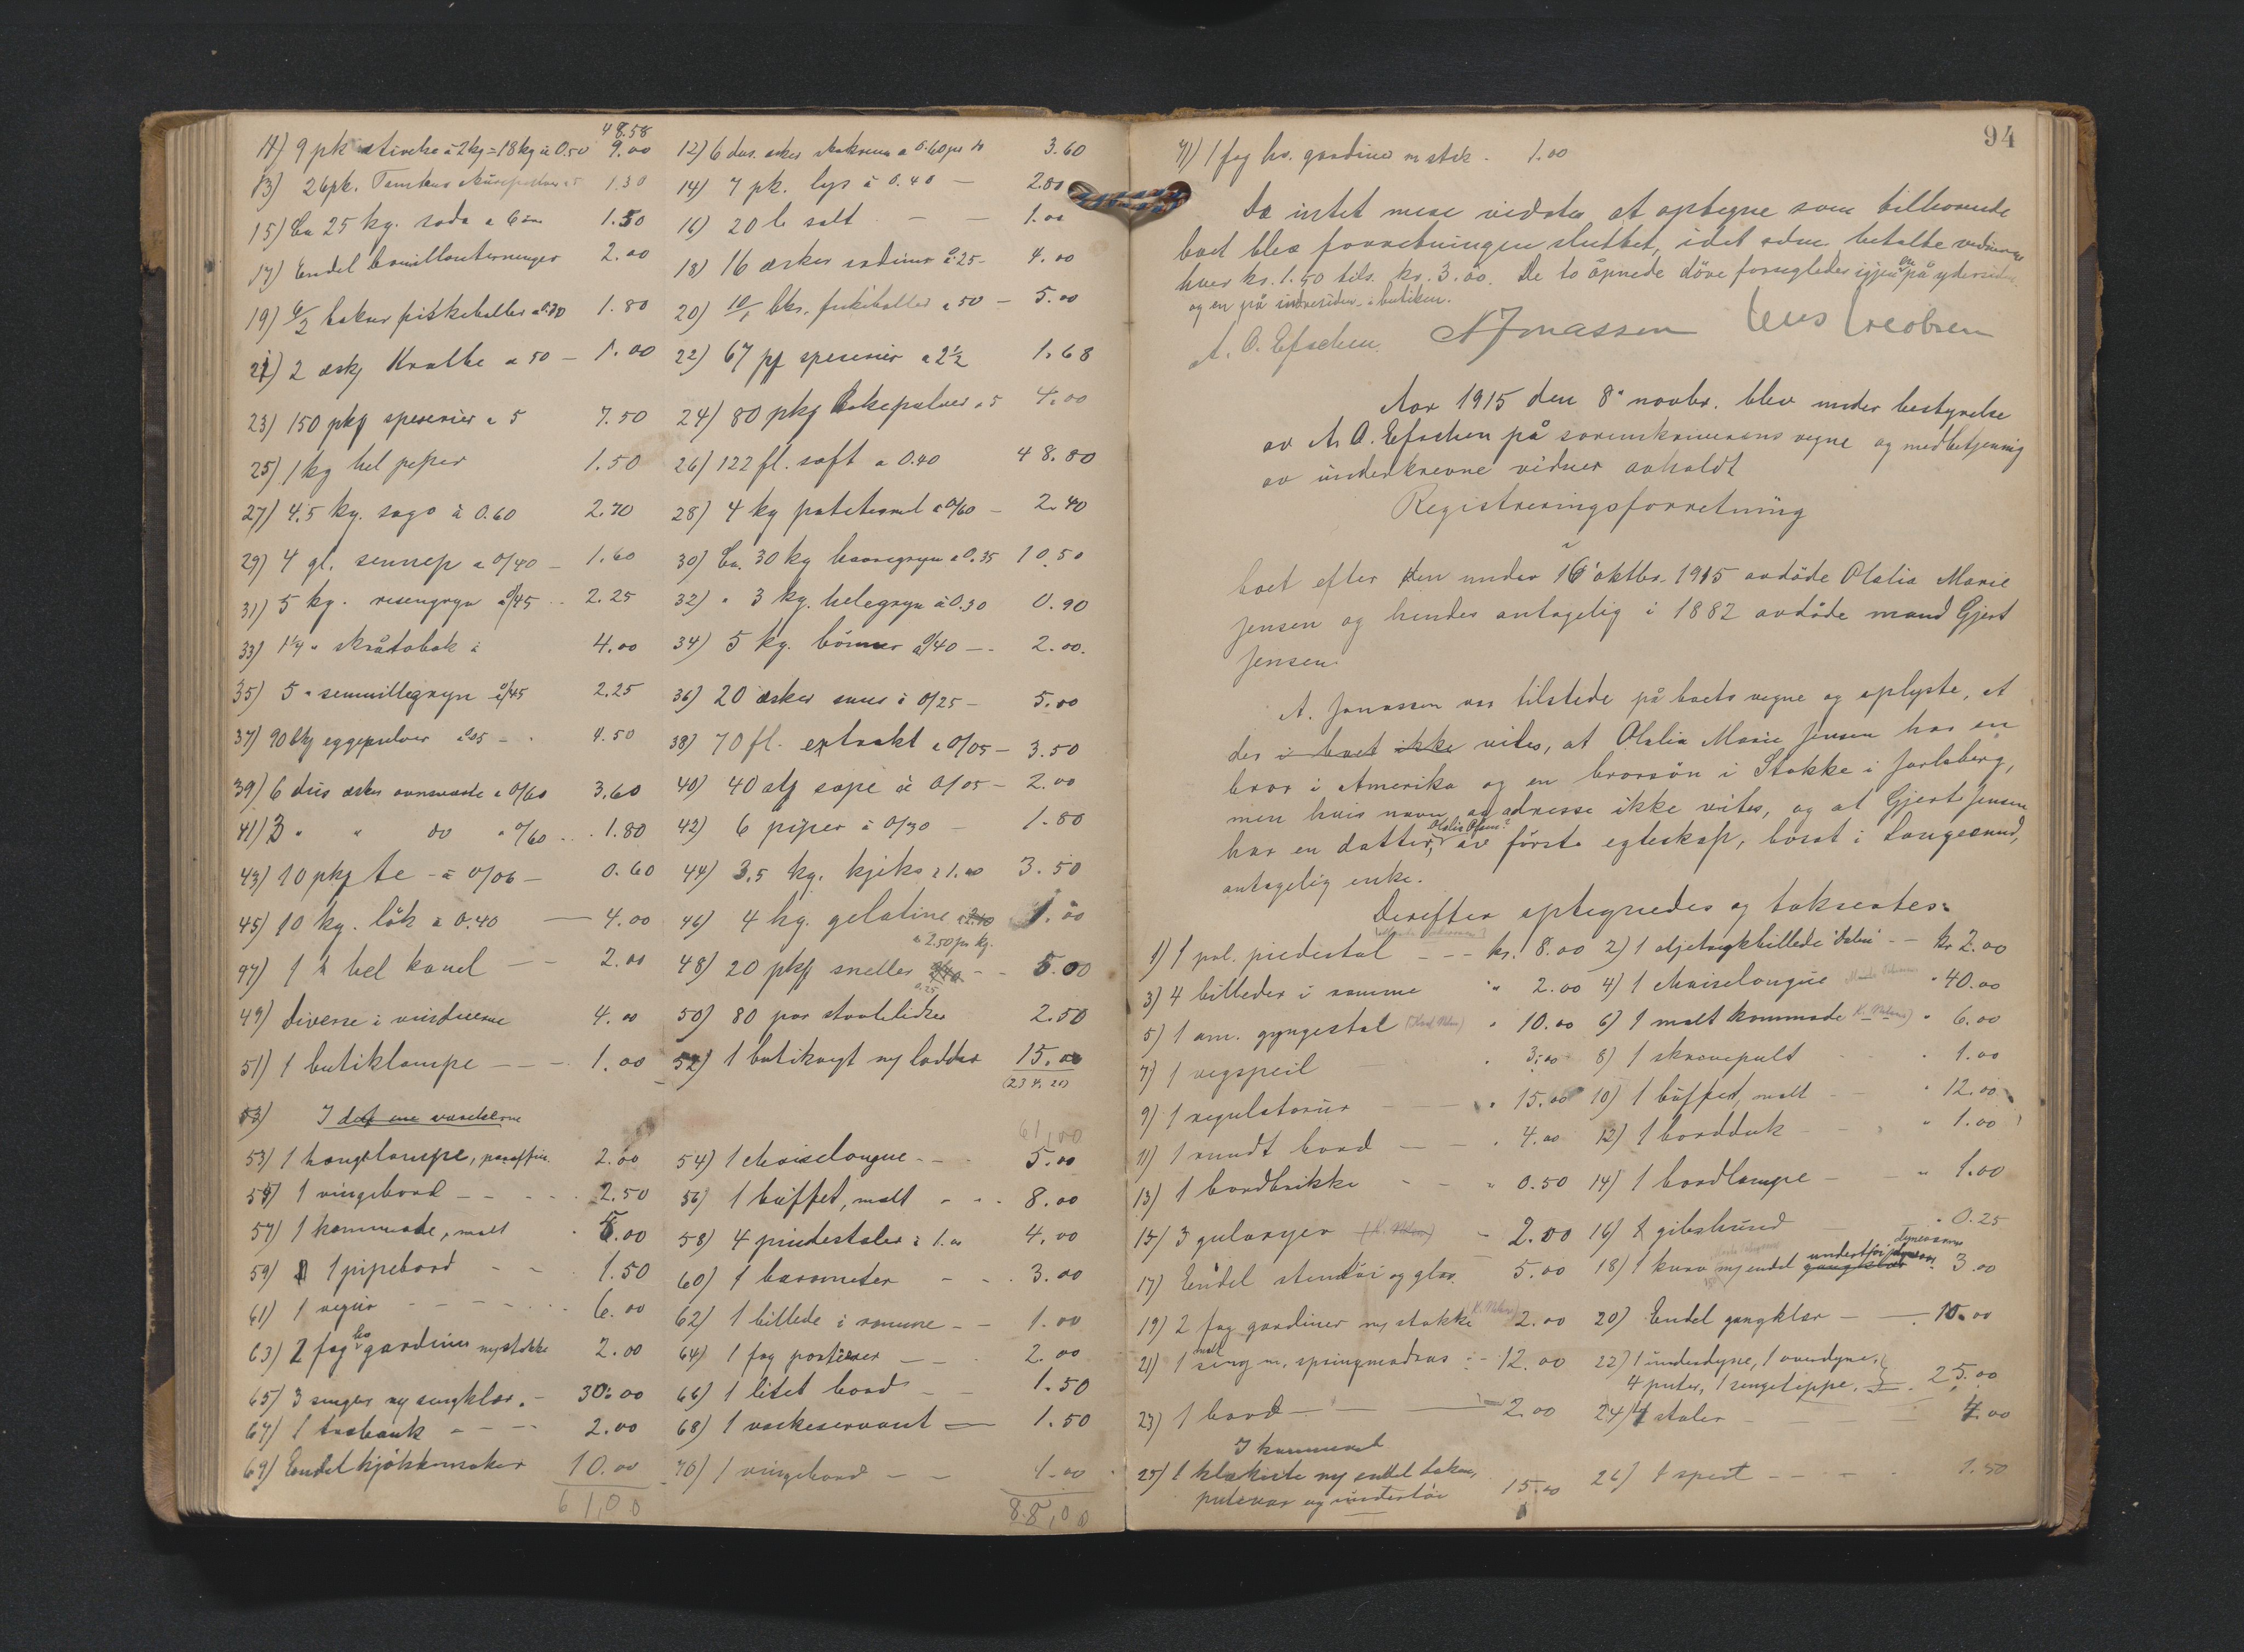 48.58
11) 9 pk stivelse à 2kg = 18kg à 0.50 9.00 12) 6 dus. esker skokrem a 0.60 pr ds 3.60
13) 26 pk. 1.30 14) 7 pk. lys à 0.40 — 2.80
15) Ca 25 kg. soda a 6 øre 1.50 16) 20 l salt — — 1.00
17) Endel bouillonterninger 2.00 18) 16 æsker sardiner à 25 - 4.00
19) 6/2 bokser fiskeboller a 0.30 1.80 20) 10/1 bks. fiskeboller a 50 — 5.00
21) 2 æskj Krabbe a 50 — 1.00 22) 67 pj speserier a 2½ 1.68
23) 150 pkj speserier a 5 7.50 24) 80 pkj bakepulver a 5 4.00
25) 1 kg hel peper 1.50 26) 122 fl. saft a 0.40 48.80
27) 4.5 kg. sago à 0.60 2.70 28) 4 kg potetesmel a 0/60 — 2.40
29) 4 gl. sennep a 0/40 — 1.60 30) Ca. 30 kg havregryn a 0.35 10.50
31) 5 kg. risengryn a 0/45 .. 2.25 32) " 3 kg. helegryn à 0.30 0.90
33) 1¼ " skråtobak à 4.00 34) 5 kg. bönner a 0/40 — 2.00.
35) 5 " semuillegryn a 0/45 2.25 36) 20 æsker snus à 0/25 — 5.00
37) 90 pkj eggepulver a 05 - . 4.50 38) 70 fl. extrakt a 0/05 — 3.50
39) 6 dus æsker ovnsverte a 0/60 3.60 40) 40 stj sape à 0/05 — 2.00
41) 3 " " do " 0/60 .. 1.80 42) 6 piper à 0/30 — 1.80
43) 10 pkj te - à 0/06 — 0.60 44) 3.5 kg. kjeks a 1.00 3.50
45) 10 kg. lök a 0.40 — 4.00 46) 4 hg. gelatine 1.00
a 2.50 pr kg.
47) 1 h hel kanel — - 2.00 48) 20 pkj sneller - - 5.00
0.25
49) Diverse i vinduerne 4.00 50) 80 par stövlelidser 2.50
51) 1 butiklampe — - - 1.00 52) 1 butikvegt m/ lodder 15.00
(234.21)
53) I det ene værelserne
61,00
53) 1 hengelampe, paraffin 2.00 54) 1 chaiselongue - - 5.00
55) 1 vingebord - - - - - 2.50 56) 1 buffet, malt - - - 8.00
57) 1 kommode, malt 5.00 58) 4 pindestoler à 1.00 4.00
59) 1 pipebord - - 1.50 60) 1 barometer - - . 3.00
61) 1 vegur - - - - - . . 6.00 62) 1 billede i ramme - - 1.00
63) 2 fag hv gardiner m/ stokke 2.00 64) 1 fag portierer — - . 2.00
65) 3 senger m/ sengklær. - 30.00 66) 1 litet bord - - 1.50
67) 1 træbænk - - - - 2.00 68) 1 vaskeservant — 1.50
69) Endel kjökkensaker 10.00 70) 1 vingebord - - 1.00
61,00 88,00
94
71) 1 fag hv. gardiner m stok - 1.00
Da intet mere vidstes at optegne som tilhörende
boet blev forretningen sluttet, idet retten betalte vidnerne
hver kr. 1.50 tils. kr. 3.00. De to åpnede döre forsegledes igjen en på ydersiden
og en på indersiden i butiken.
A. O. Efschen AJonassen Jens Jacobsen
Aar 1915 den 8de novbr. blev under bestyrelse
av A. O. Efschen på sorenskriverens vegne og medbetjening
av underskrevne vidner avholdt
Registreringsforretning
i
boet efter den under 16 oktbr. 1915 avdöde Olalia Marie
Jensen og hendes antagelig i 1882 avdöde mand Gjert
Jensen.
A. Jonassen var tilstede på boets vegne og oplyste, at
der i boet ikke vites, at Olalia Marie Jensen har en
bror i Amerika og en brorsön i Stokke i Jarlsberg,
men hvis navn og adresse ikke vites, og at Gjert Jensen
har en datter, Olalia Olsen? av första egteskap, bosat i Langesund,
antagelig enke.
Derefter optegnedes og takseates:
1) 1 pol. piedestal - - - kr. 8.00 2) 1 oljetrykbillede - - kr 2.00
3) 4 billeder i ramme " 2.00 4) 1 chaiselongue " 40.00
5) 1 am. gyngestol " 10.00 6) 1 malt kommode " 6.00
7) 1 vegspeil " 3.00 8) 1 skrivepult " 1.00
9) 1 regulatorur - - " 15.00 10) 1 buffet, malt - " 12.00
11) 1 rundt bord — - " 4.00 12) 1 bordduk - " 1.00
13) 1 bordbrikke - - " 0.50 14) 1 bordlampe - - " 1.00
15) 3 gulvryer - 2.00 16) 1 gibshund " 0.25
dynevaar
17) Endel stentöi og glas. 5.00 18) 1 kurv m/ endel undertöi gangklær 3.00
19) 2 fag gardiner m/ stokke 2.00 20) Endel gangklær — — . 10.00
21) 1 malt seng m. springmadras : - 12.00 22) 1 underdyne, 1 overdyne,
4 puter, 1 sengeteppe. 25.00
23) 1 bord - - — 2.00 24) 4 stoler - 4.00
I kammerset
25) 1 klækiste m/ endel laken,
putevar og undertöi 15.00 26) 1 speil - - - - 1.50